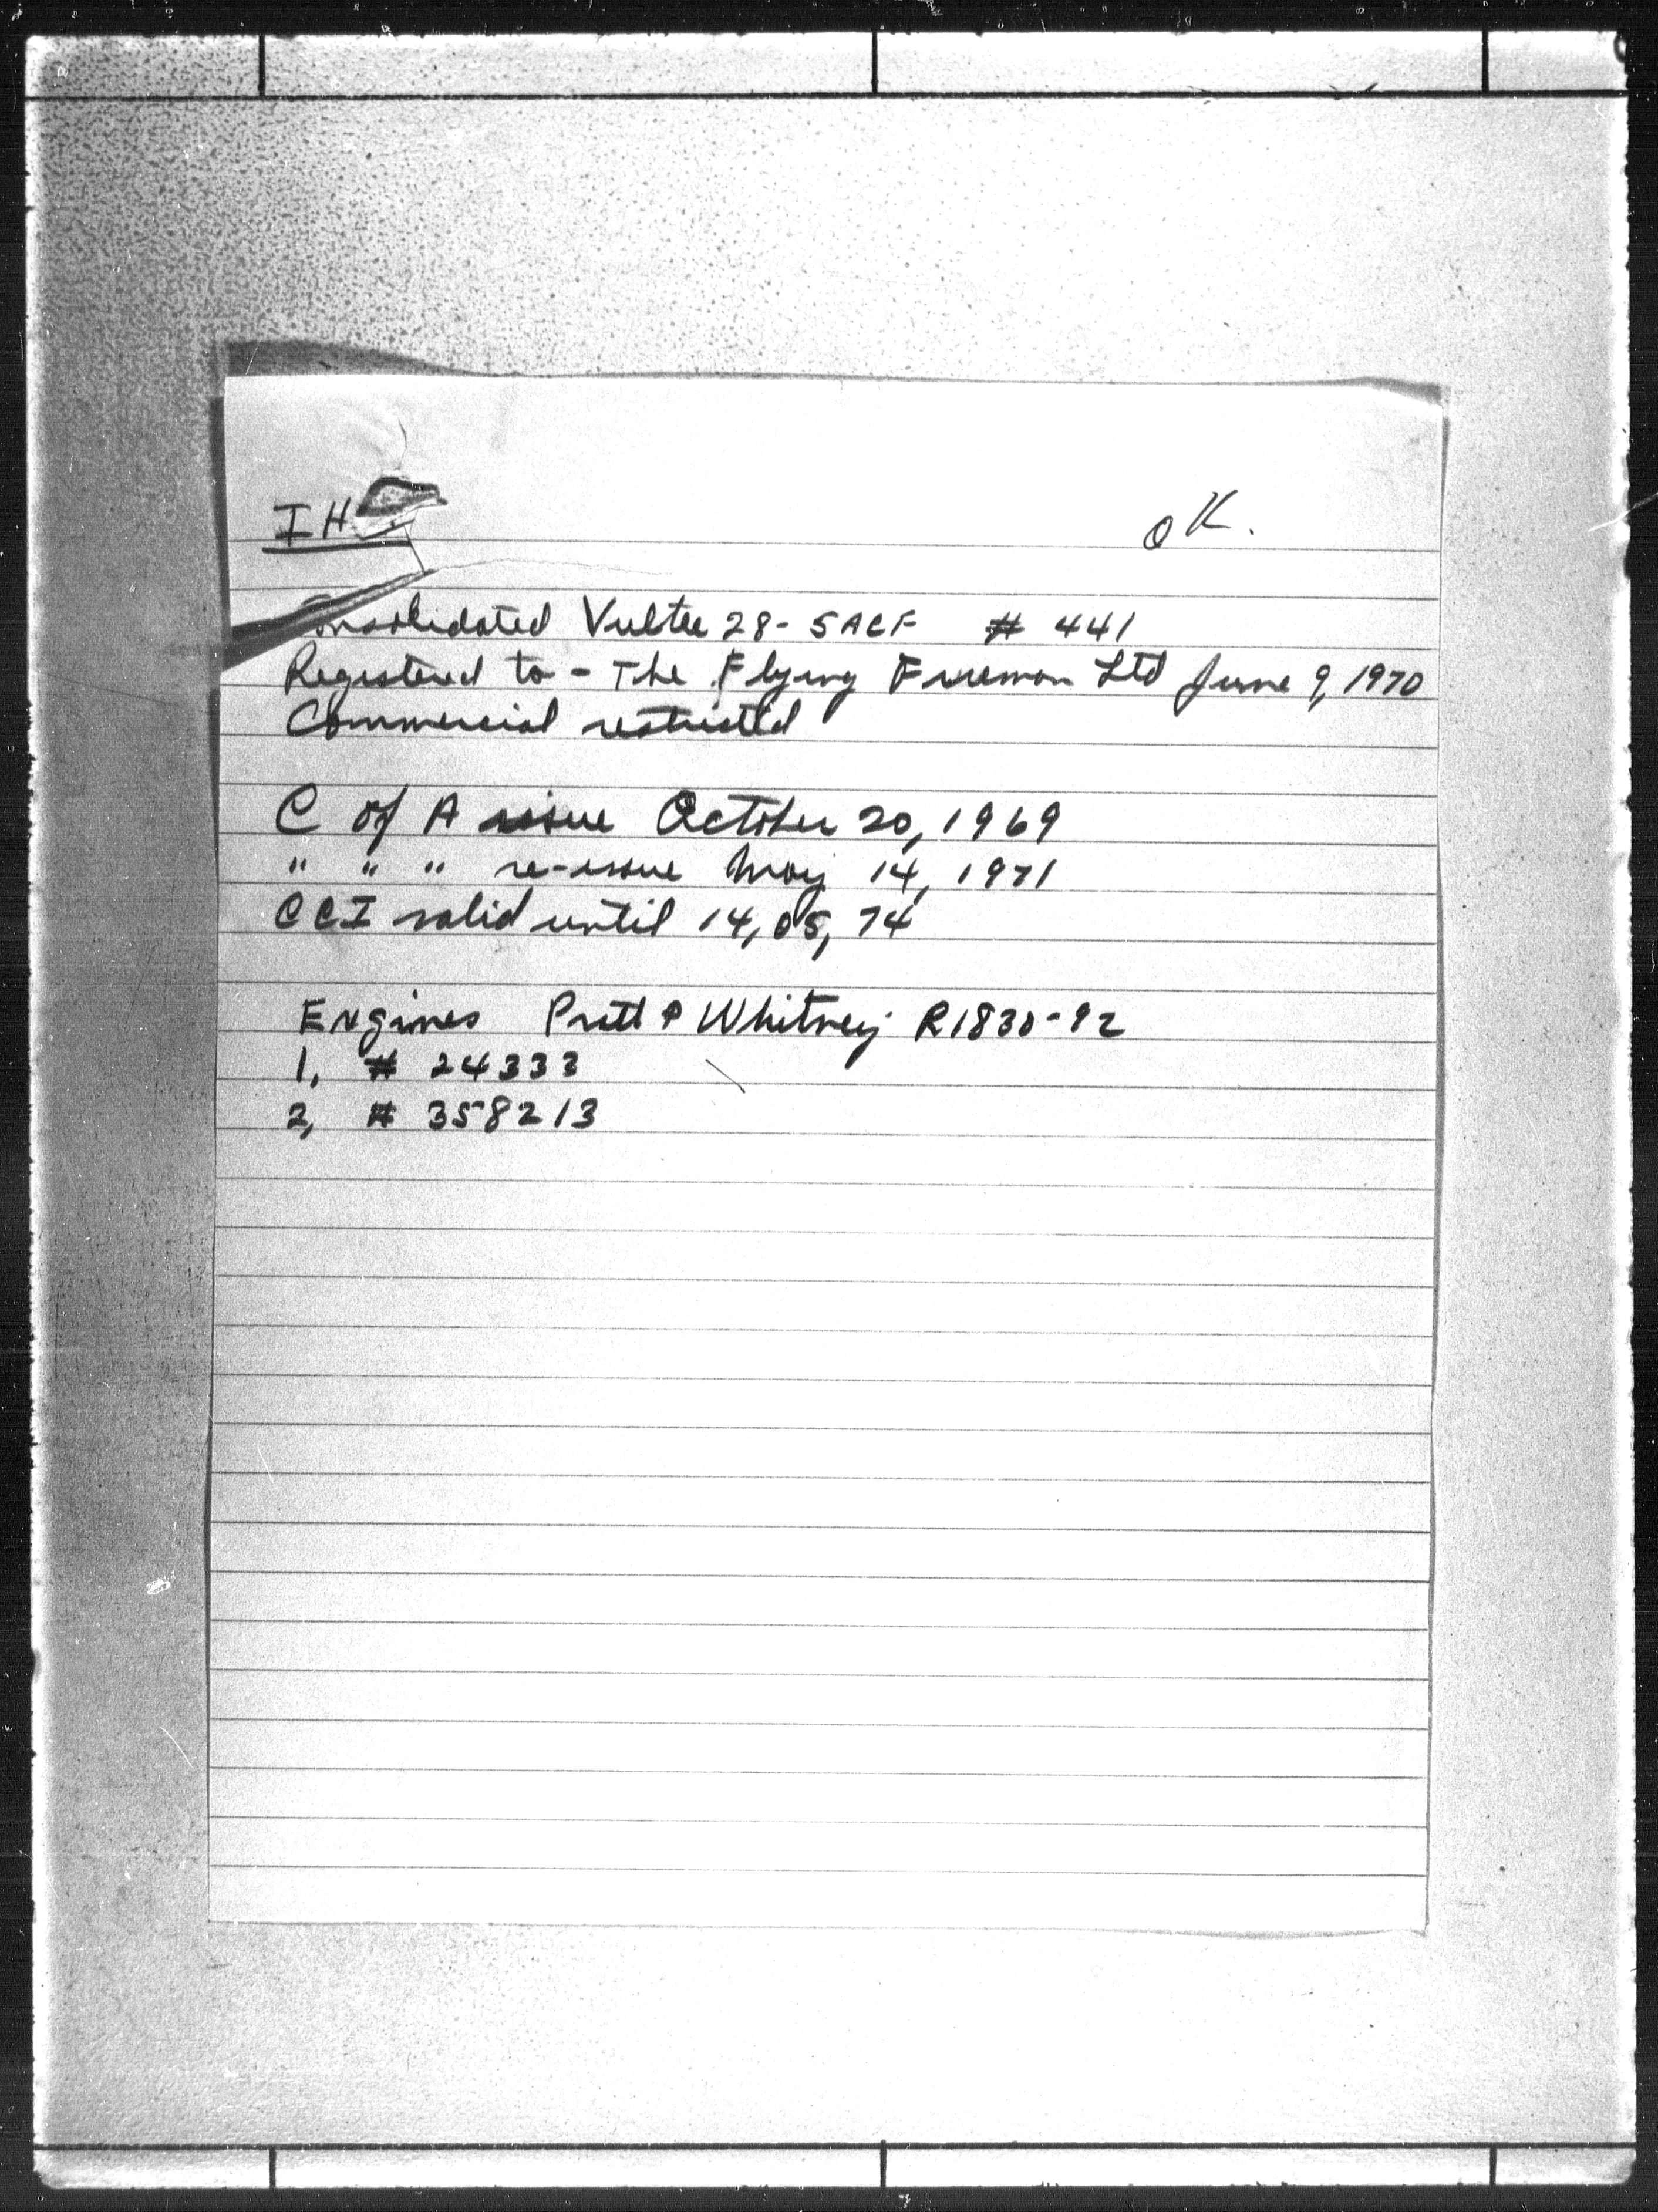 IH
OK.
onsolidated Vultee 28-5ACF # 441
Registered to - The Flying Fireman Ltd June 9, 1970
Commercial restricted
C of A issue October 20, 1969
" " " re-issue May 14, 1971
CCI valid until 14, 05, 74
Engines Pratt & Whitney R1830-92
1, # 24333
2, # 358213